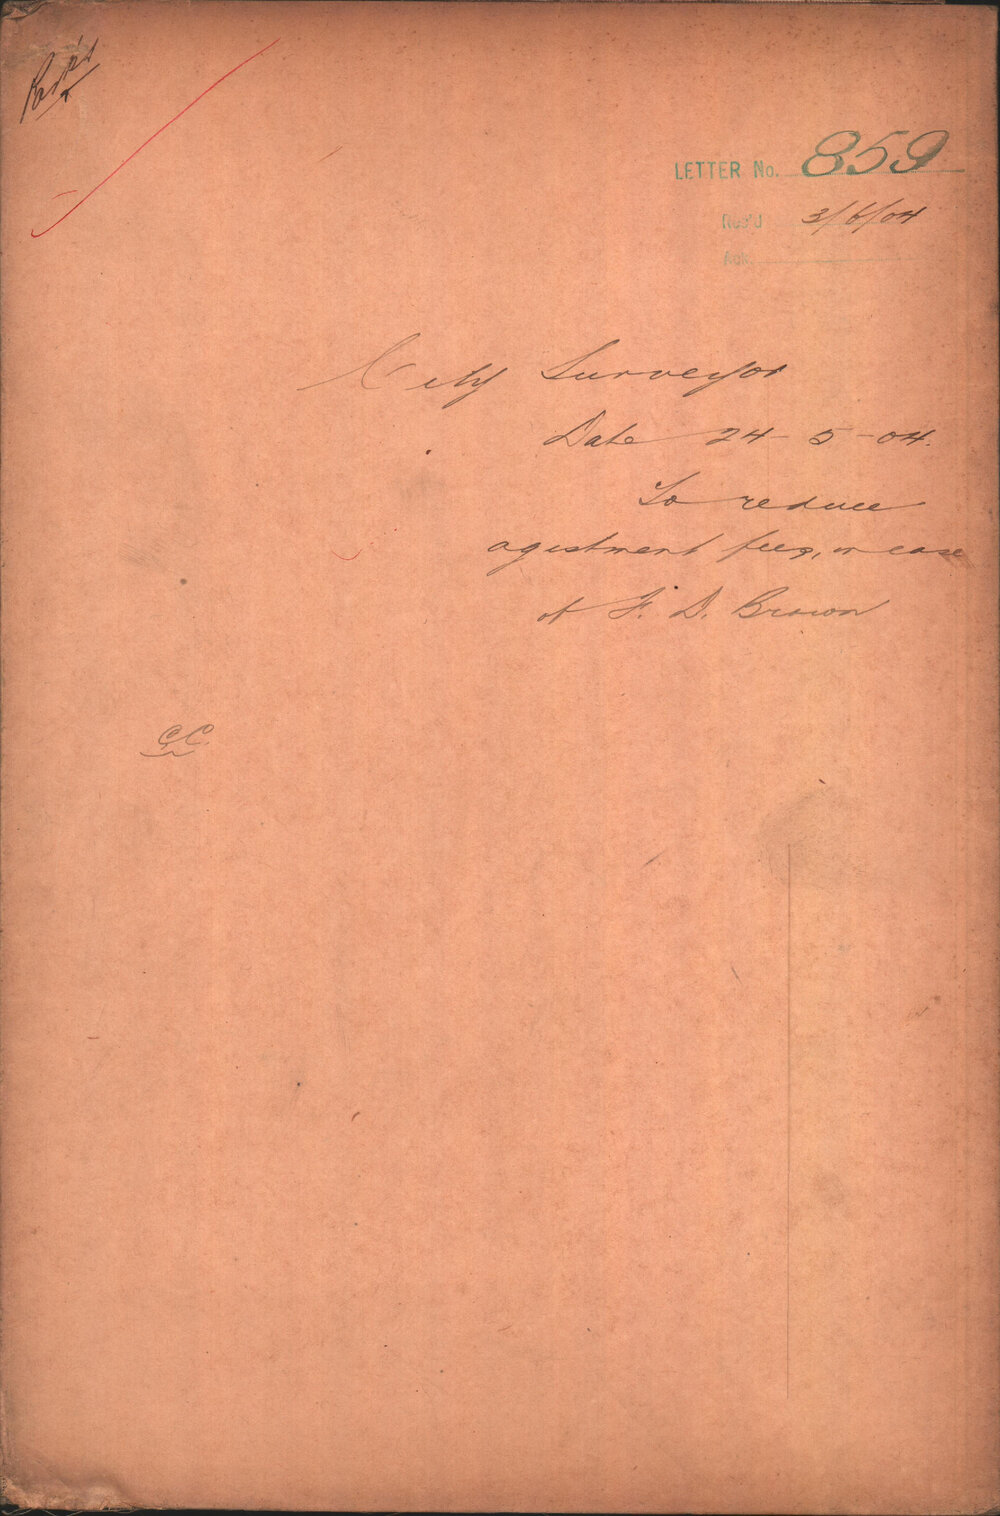 LETTER No. 859
Rec'd 3/6/04
Ack.
City Surveyor
Date 24-5-04.
To reduce
agistment fees, in case
of F. D. Brown
C.C.